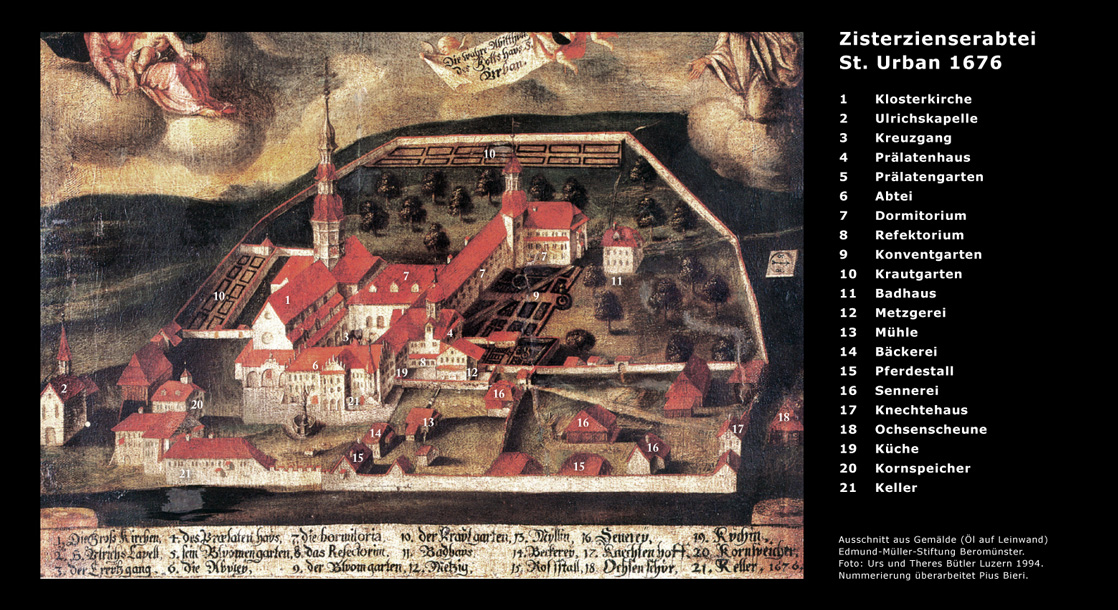 Die wahre Abbildung
des Gottshaus S.
Urban.
Zisterzienserabtei
St. Urban 1676
1 Klosterkirche
2 Ulrichskapelle
3 Kreuzgang
4 Prälatenhaus
5 Prälatengarten
6 Abtei
7 Dormitorium
8 Refektorium
9 Konventgarten
10 Krautgarten
11 Badhaus
12 Metzgerei
13 Mühle
14 Bäckerei
15 Pferdestall
16 Sennerei
17 Knechtehaus
18 Ochsenscheune
19 Küche
20 Kornspeicher
21 Keller
10
10
7
7
7
11
1
9
3
4
6
8
19
12
2
21
16
20
13
16
18
14
17
16
15
15
21
1. Die Groß Kirchen, 4. des Prælaten haus, 7. die dormitoria, 10. der Krautgarten, 13. Myllin, 16. Senerey, 19. Kychin,
2. S. Vlrichs Capell, 5. sein Blvomengarten, 8. das Refectorium, 11. Badhavs, 14. Beckerey, 17. Knechten hoff, 20. Kornspeicher,
3. der Creytzgang, 6. die Abbtey, 9. der Blvomgarten, 12. Metzig, 15. Rosstall, 18. Ochsen schür, 21. Keller, 1676.
Ausschnitt aus Gemälde (Öl auf Leinwand)
Edmund-Müller-Stiftung Beromünster.
Foto: Urs und Theres Bütler Luzern 1994.
Nummerierung überarbeitet Pius Bieri.